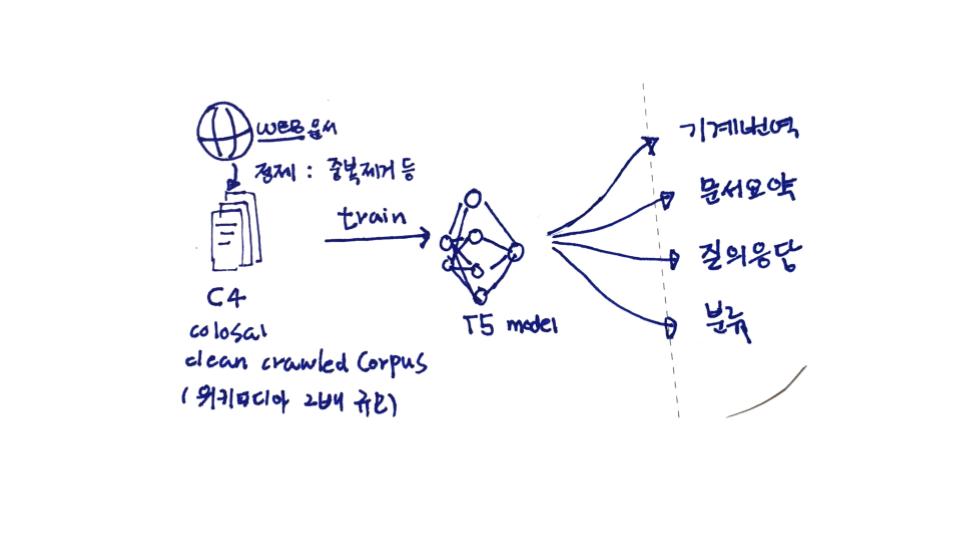 WEB 문서
정제 : 중복제거 등
train
C4
colosal
clean crawled Corpus
(위키피디아 2배 규모)
T5 model
기계번역
문서요약
질의응답
분류